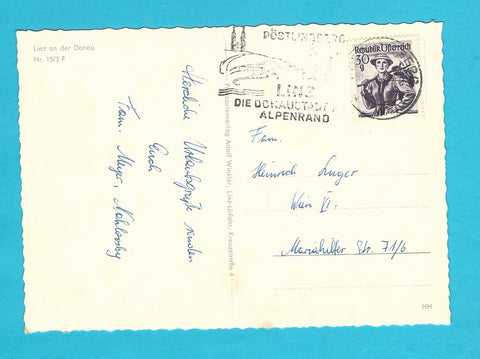 Linz an der Donau
Nr. 15/5 F
PÖSTLINGBERG
LINZ
DIE DONAUSTADT
ALPENRAND
Republik Österreich
30
g
Herzliche Urlaubsgrüße senden
Euch
Fam. Meyer,
Kartenverlag Adolf Winkler, Linz-Urfahr, Kreuzstraße 4
Fam.
Heinrich Luger
Wien VI.
Mariahilfer Str. 71/6
HH